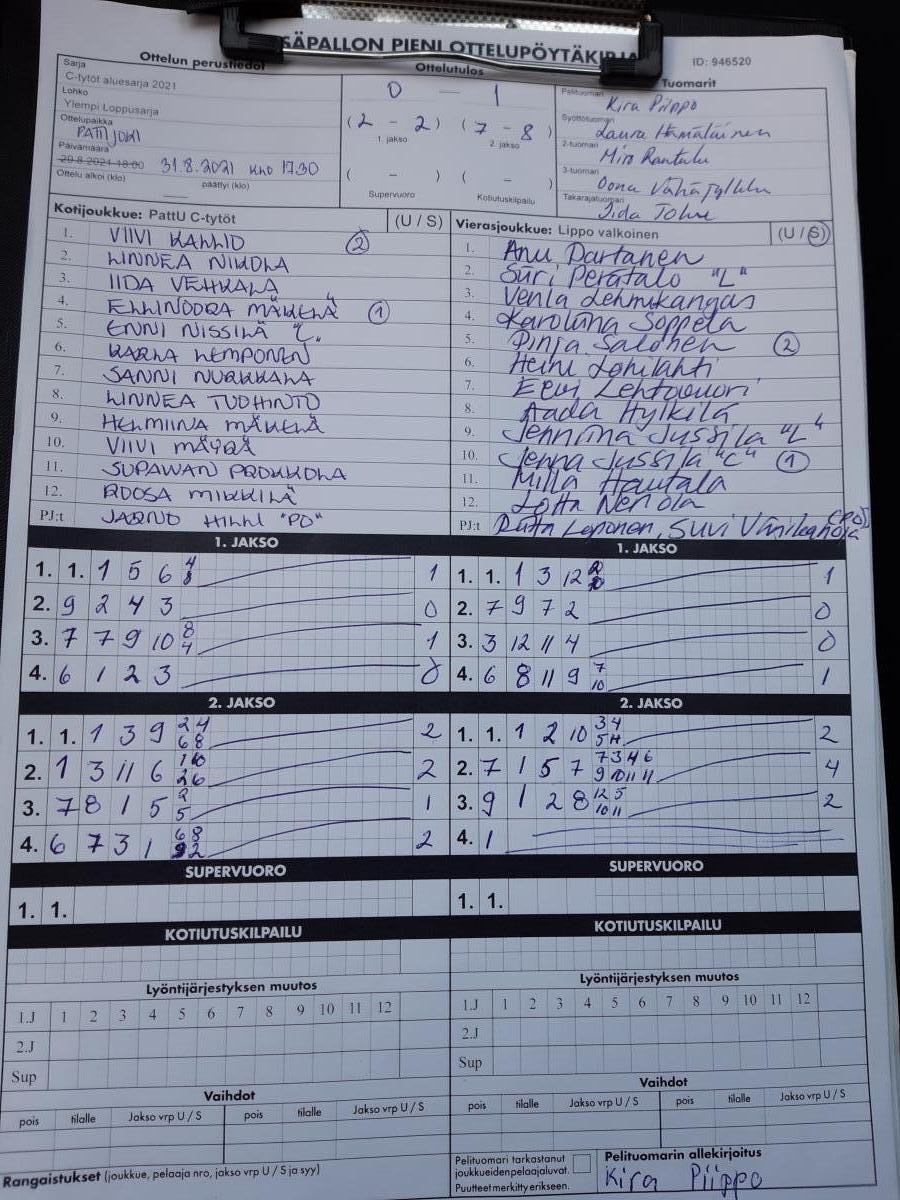 SÄPALLON PIENI OTTELUPÖYTÄKIRJA
ID: 946520
Ottelun perustiedot
Sarja
C-tytöt aluesarja 2021
Lohko
Ylempi Loppusarja
Ottelupaikka
PATTIJOKI
Päivämäärä
29.8.2021 18:00 31.8.2021 KLO 17.30
Ottelu alkoi (klo) päättyi (klo)
Ottelutulos
0 — 1
(2 - 2) (7 - 8)
1. jakso 2. jakso
( - ) ( - )
Supervuoro Kotiutuskilpailu
Tuomarit
Pelituomari
Kira Piippo
Syöttötuomari
Laura Hämäläinen
2-tuomari
Miro Rantala
3-tuomari
Oona
Takarajatuomari
Iida
Kotijoukkue: PattU C-tytöt (U / S)
1. VIIVI KALLIO ②
2. LINNEA NIKOLA
3. IIDA VEHKALA
4. ELLINOORA MÄKELÄ ①
5. ENNI NISSILÄ "L"
6. KARLA KEMPONEN
7. SANNI NURKKALA
8. LINNEA TUOHINTO
9. HELMIINA MÄKELÄ
10. VIIVI MÄYRÄ
11. SUPAWAN PROKKOLA
12. ROOSA MIKKILÄ
PJ:t JARNO HILLI "PO"
Vierasjoukkue: Lippo valkoinen (U / S)
1. Anu Partanen
2. Suri Perätalo "L"
3. Venla Lehmikangas
4. Karoliina Soppela
5. Pinja Salonen ②
6. Heini Lohilahti
7. Eevi Lehtovuori
8. Aada Hylkilä
9. Jenniina Jussila "L"
10. Jenna Jussila "C" ①
11. Milla Hautala
12. Lotta Nerola
PJ:t Riitta Leponen, Suvi
1. JAKSO
1. 1. 1 5 6 4 8 1
2. 9 2 4 3 0
3. 7 7 9 10 8 4 1
4. 6 1 2 3 0
1. JAKSO
1. 1. 1 3 12 2 10 1
2. 7 9 7 2 0
3. 3 12 11 4 0
4. 6 8 11 9 7 10 1
2. JAKSO
1. 1. 1 3 9 2 4 6 8 2
2. 1 3 11 6 1 10 2 6 2
3. 7 8 1 5 2 5 1
4. 6 7 3 1 6 8 9 2 2
2. JAKSO
1. 1. 1 2 10 3 4 5 11 2
2. 7 1 5 7 7 3 4 6 9 10 11 11 4
3. 9 1 2 8 12 5 10 11 2
4. 1
SUPERVUORO
1. 1.
SUPERVUORO
1. 1.
KOTIUTUSKILPAILU
KOTIUTUSKILPAILU
Lyöntijärjestyksen muutos
1.J 1 2 3 4 5 6 7 8 9 10 11 12
2.J
Sup
Lyöntijärjestyksen muutos
1.J 1 2 3 4 5 6 7 8 9 10 11 12
2.J
Sup
Vaihdot
pois tilalle Jakso vrp U / S pois tilalle Jakso vrp U / S
Vaihdot
pois tilalle Jakso vrp U / S pois tilalle Jakso vrp U / S
Rangaistukset (joukkue, pelaaja nro, jakso vrp U / S ja syy)
Pelituomari tarkastanut
joukkueiden pelaajaluvat.
Puutteet merkitty erikseen.
Pelituomarin allekirjoitus
Kira Piippo